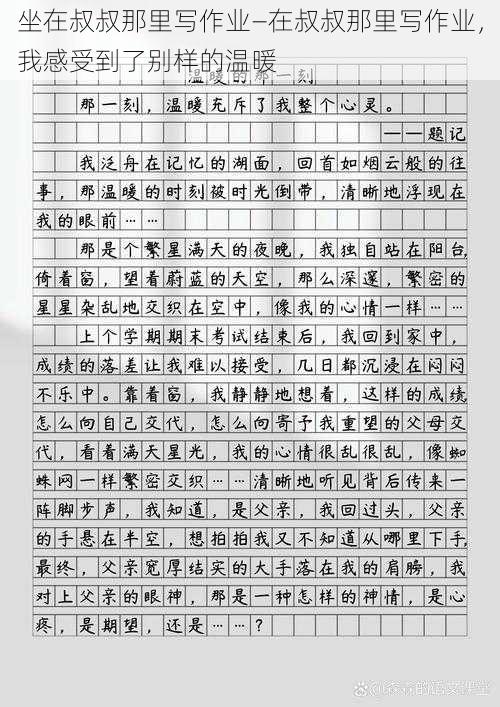 坐在叔叔那里写作业—在叔叔那里写作业，
我感受到了别样的温暖
温暖的那一刻
那一刻，温暖充斥了我整个心灵。
——题记
我泛舟在记忆的湖面，回首如烟云般的往
事，那温暖的时刻被时光倒带，清晰地浮现在
我的眼前……
那是个繁星满天的夜晚，我独自站在阳台，
倚着窗，望着蔚蓝的天空，那么深邃，繁密的
星星杂乱地交织在空中，像我的心情一样……
上个学期期末考试结束后，我回到家中，
成绩的落差让我难以接受，几日都沉浸在闷闷
不乐中。靠着窗，我静静地想着，这样的成绩
怎么向自己交代，怎么向寄予我重望的父母交
代，看着满天星光，我的心情很乱很乱，像蜘
蛛网一样繁密交织……清晰地听见背后传来一
阵脚步声，我知道，是父亲，我回过头，父亲
的手悬在半空，想拍拍我又不知道从哪里下手，
最终，父亲宽厚结实的大手落在我的肩膀，我
对上父亲的眼神，那是一种怎样的神情，是心
疼，是期望，还是……？